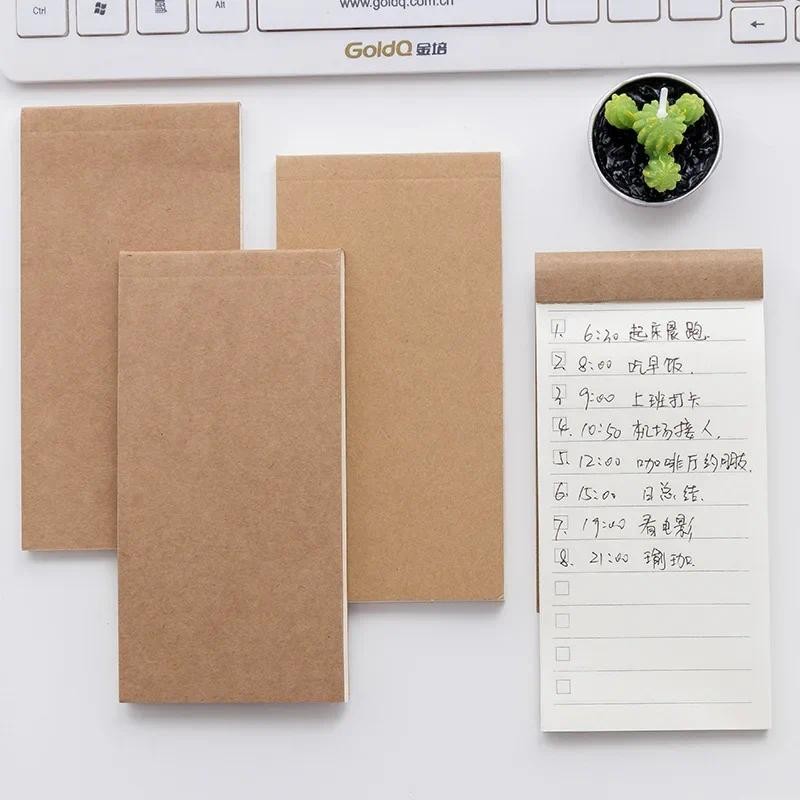 Ctrl
Alt
www.goldq.com.cn
GoldQ金培
1. 6:30 起床晨跑.
2. 8:00 吃早饭.
3. 9:00 上班打卡
4. 10:50 机场接人.
5. 12:00 咖啡厅约朋友.
6. 15:00 日总结.
7. 19:00 看电影
8. 21:00 瑜珈.